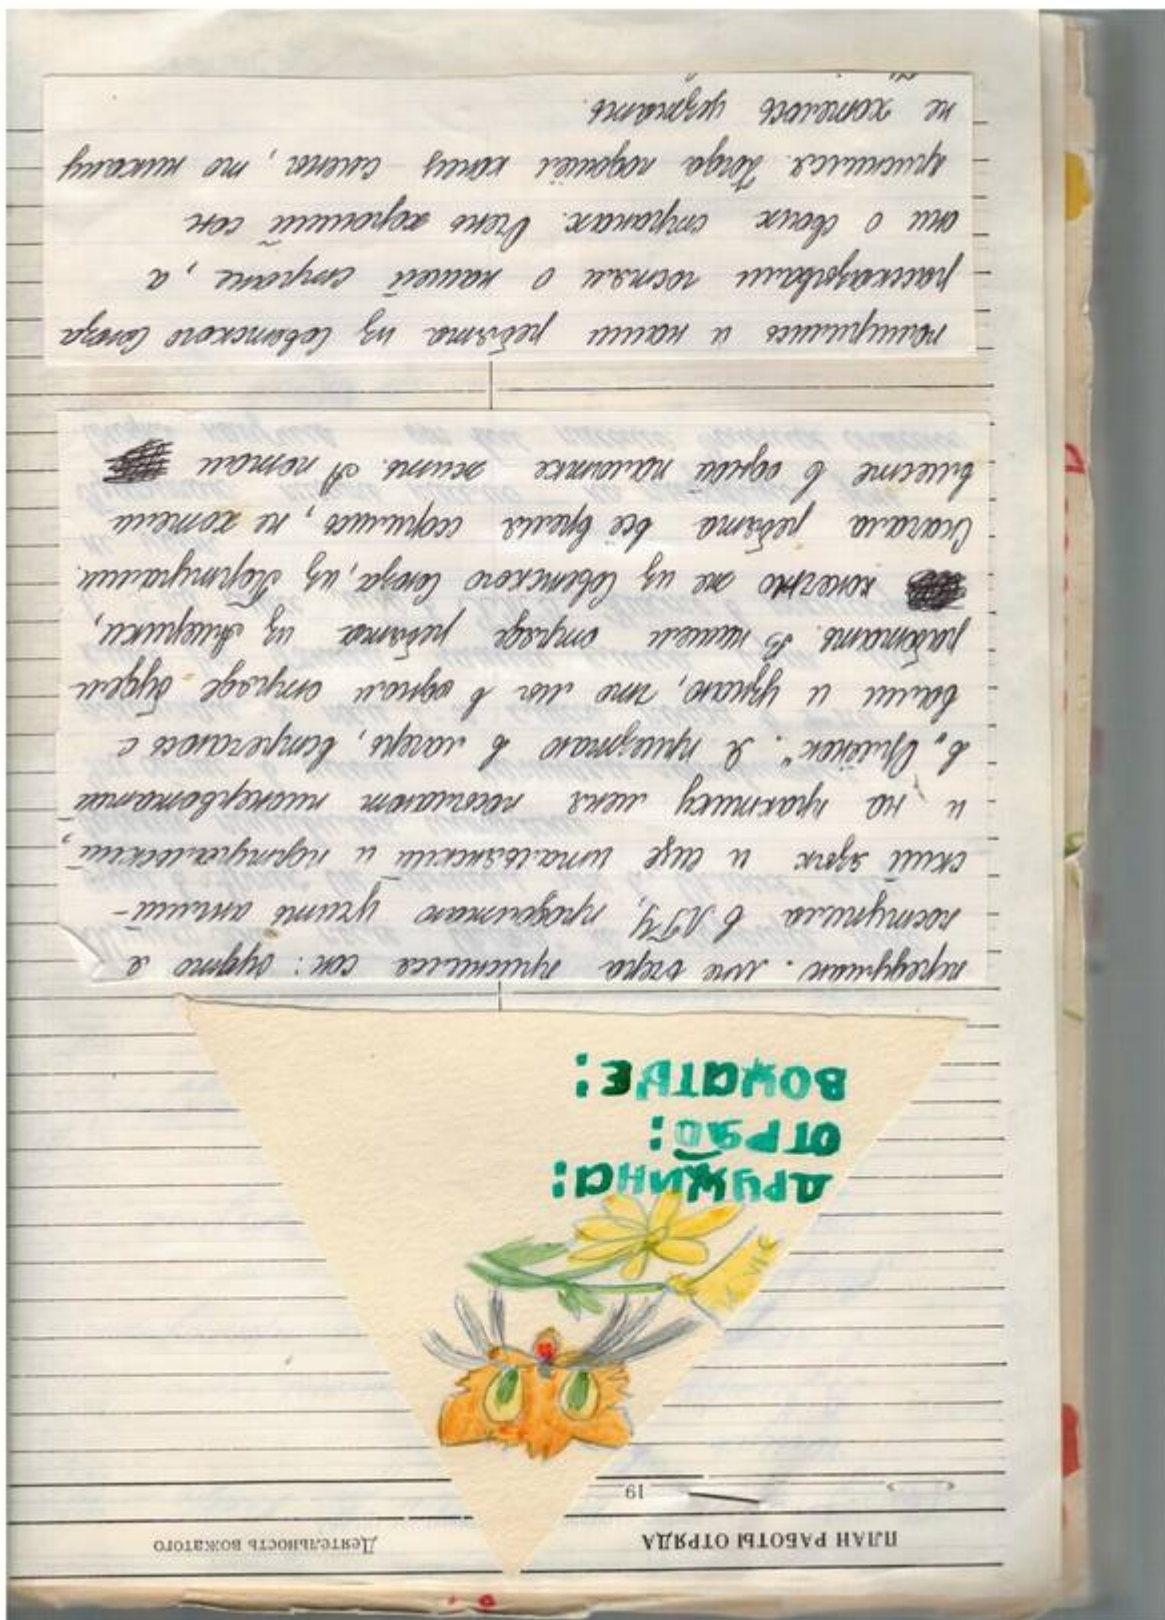 ПЛАН РАБОТЫ ОТРЯДА
Деятельность вожатого
« » 19
ДРУЖИНА:
ОТРЯД:
ВОЖАТЫЕ:
передумаю. Мне вчера приснился сон: будто я
поступила в ЛГУ, продолжаю учить англий-
ский язык и еще итальянский и португальский,
и на практику меня посылают пионервожатой
в „Орлёнок". Я приезжаю в лагерь, встречаюсь с
вами и узнаю, что мы в одном отряде будем
работать. В нашем отряде ребята из Америки,
конечно же из Советского Союза, из Португалии.
Сначала ребята всё время ссорились, не хотели
вместе в одной палатке жить. А потом
помирились и наши ребята из Советского Союза
рассказывали гостям о нашей стране, а
они о своих странах. Очень хороший сон
приснился. Когда подошёл конец смены, то никому
не хотелось уезжать.